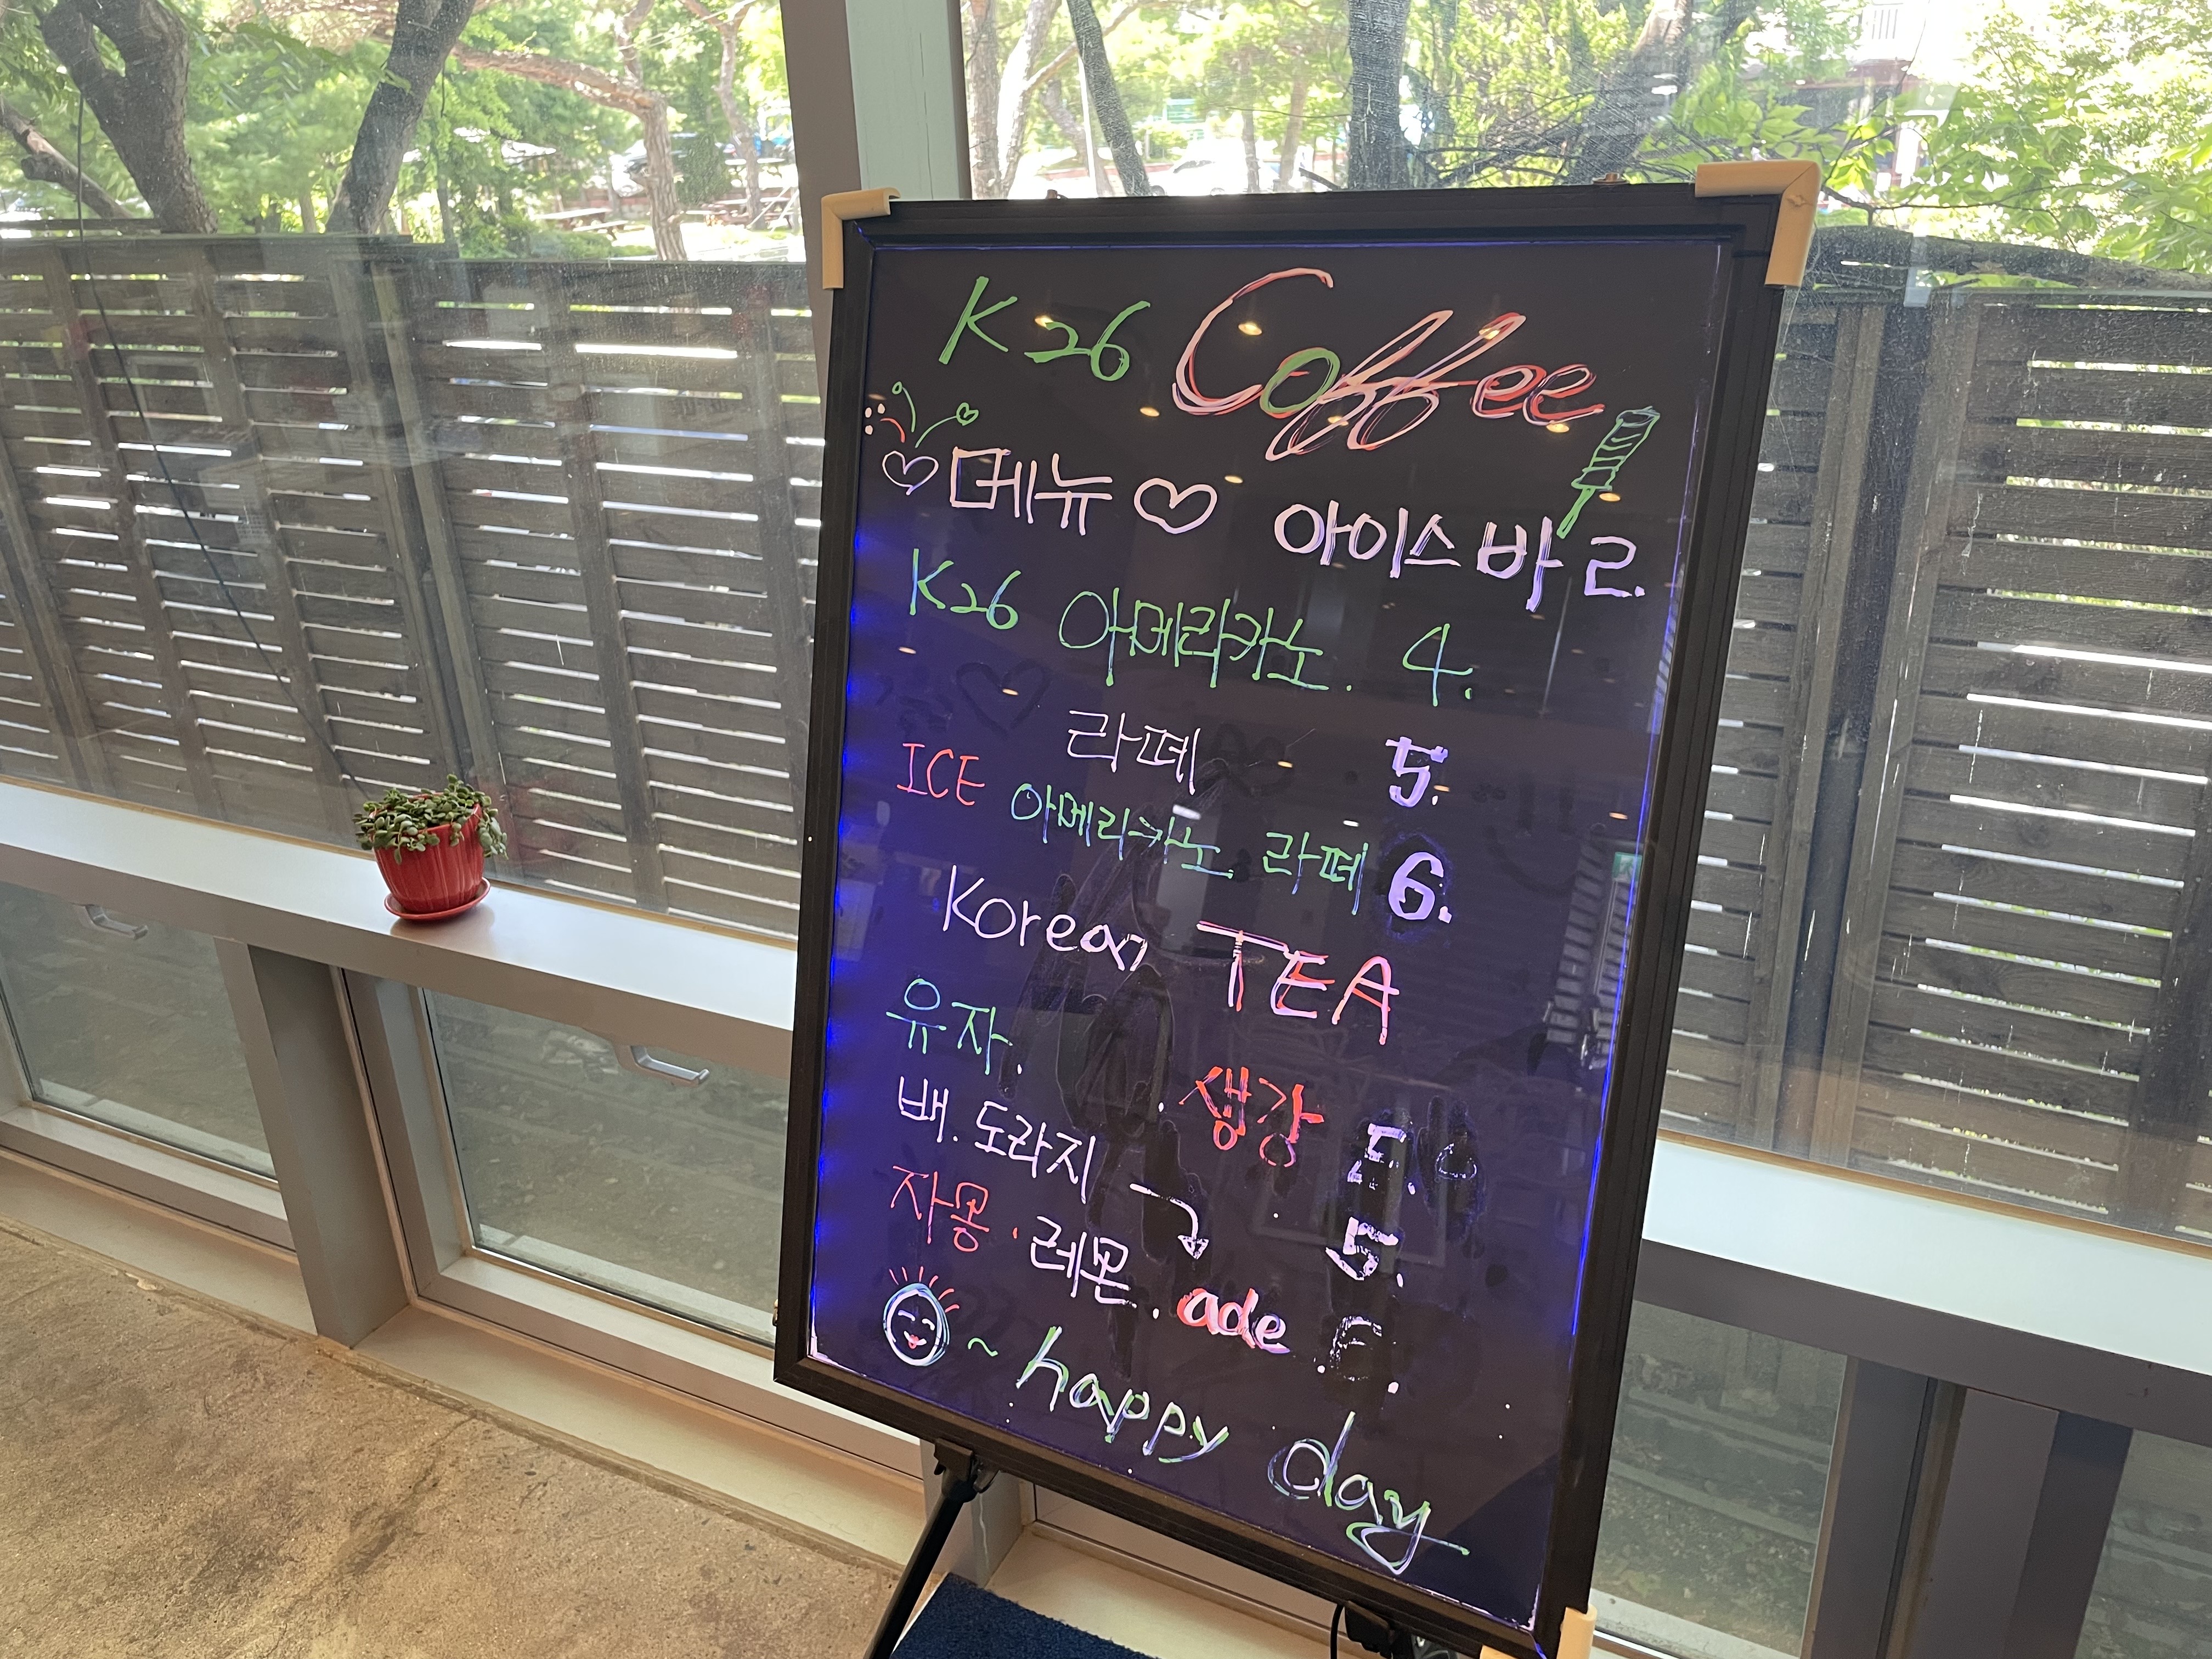 K26 Coffee
메뉴 아이스바 2.
K26 아메리카노. 4.
라떼 5.
ICE 아메리카노 라떼 6.
Korean TEA
유자. 생강 5.
배. 도라지 5.
자몽. 레몬. ade
~ happy day